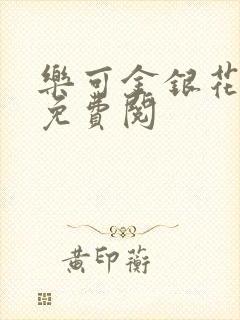 樂可金銀花
免費閱
黃印蘅